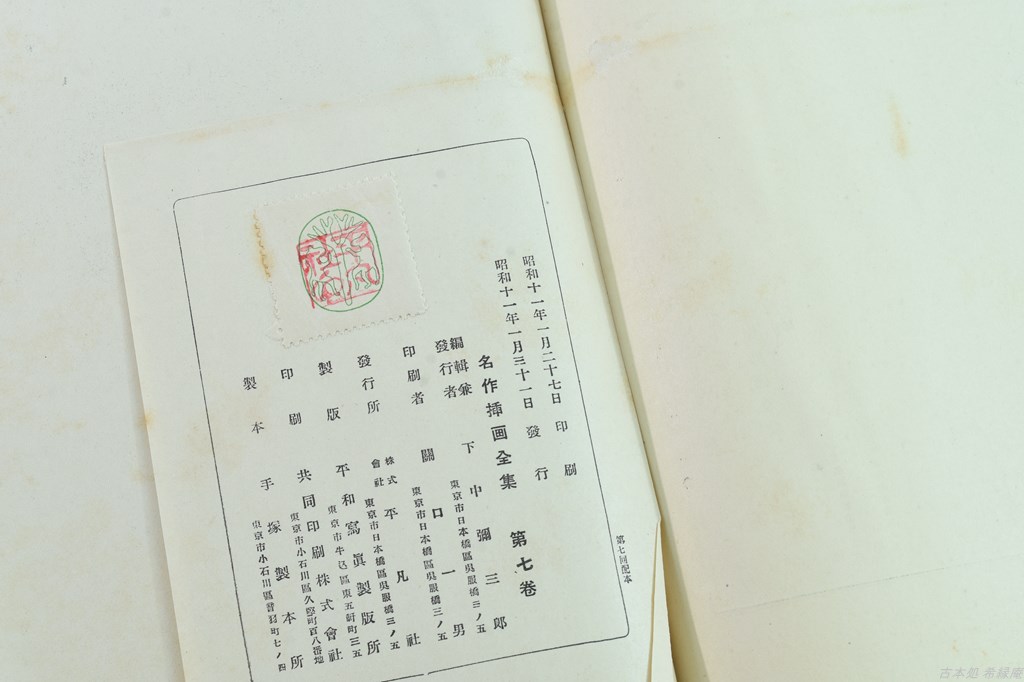 昭和十一年一月二十七日 印刷
昭和十一年一月三十一日 發行
名作挿画全集 第七卷
編輯兼
發行者 下中彌三郎
東京市日本橋區吳服橋三ノ五
印刷者 關口一男
東京市日本橋區吳服橋三ノ五
發行所 株式會社 平凡社
東京市日本橋區吳服橋三ノ五
製版 平和寫眞製版所
東京市牛込區東五軒町三五
印刷 共同印刷株式會社
東京市小石川區久堅町百八番地
製本 手塚製本所
第七回配本
古本処 希縁庵